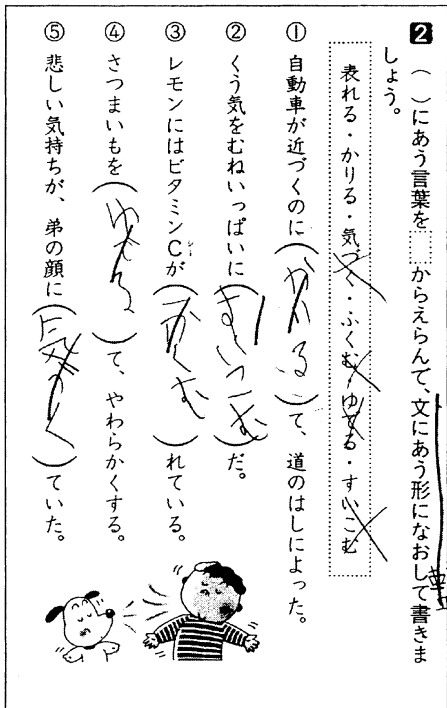 2 ( )にあう言葉を からえらんで、文にあう形になおして書きま
しょう。
表れる・かりる・気づく・ふくむ・ゆでる・すいこむ
① 自動車が近づくのに(かりる)て、道のはしによった。
② くう気をむねいっぱいに(すいこむ)だ。
③ レモンにはビタミンCが(ふくむ)れている。
④ さつまいもを(ゆでる)て、やわらかくする。
⑤ 悲しい気持ちが、弟の顔に(気づく)ていた。